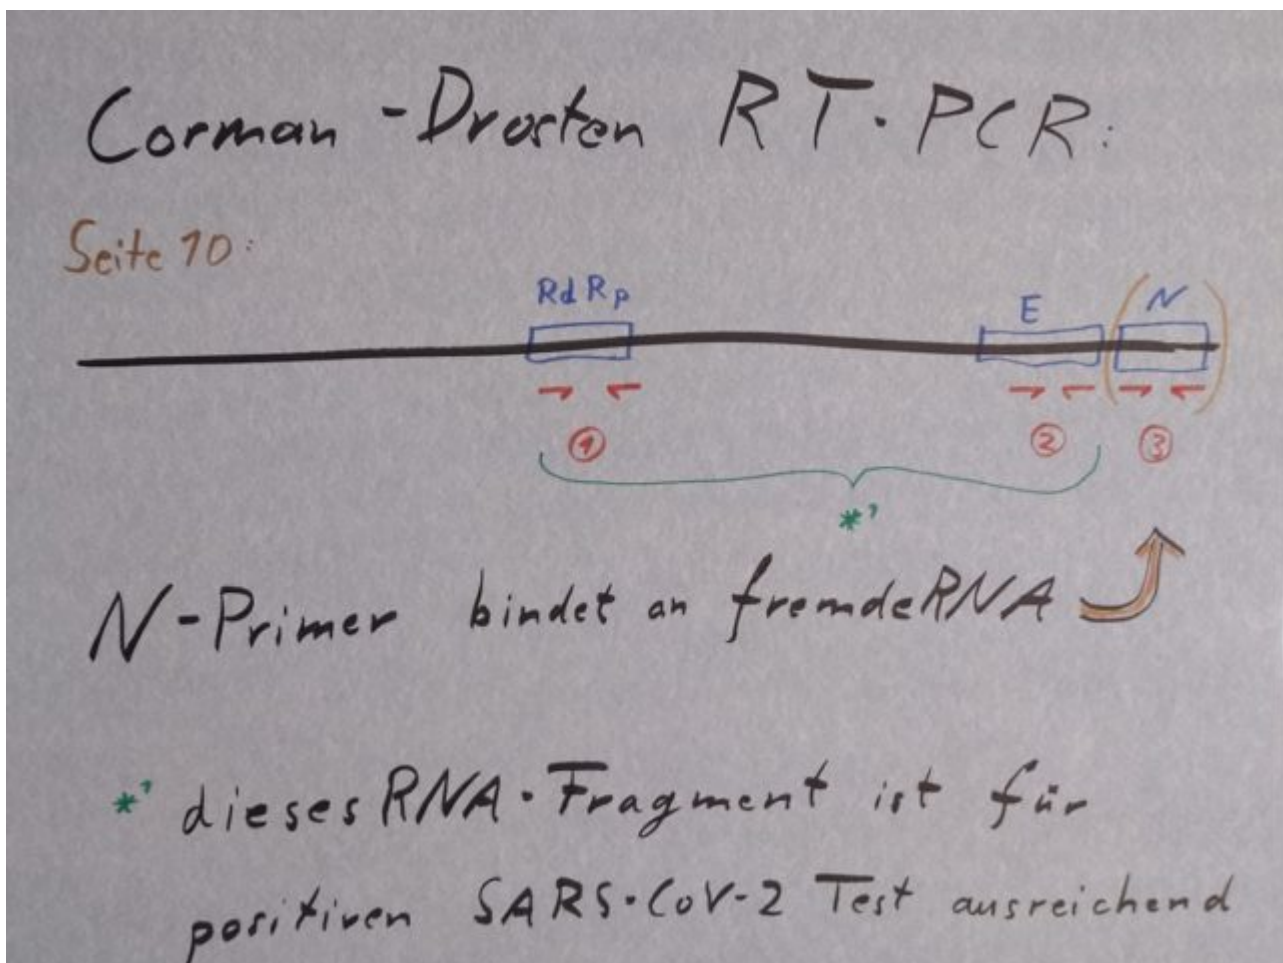 Corman-Drosten RT-PCR:
Seite 10:
RdRp E (N)
① ② ③
*'
N-Primer bindet an fremdeRNA
*' dieses RNA-Fragment ist für
positiven SARS-CoV-2 Test ausreichend